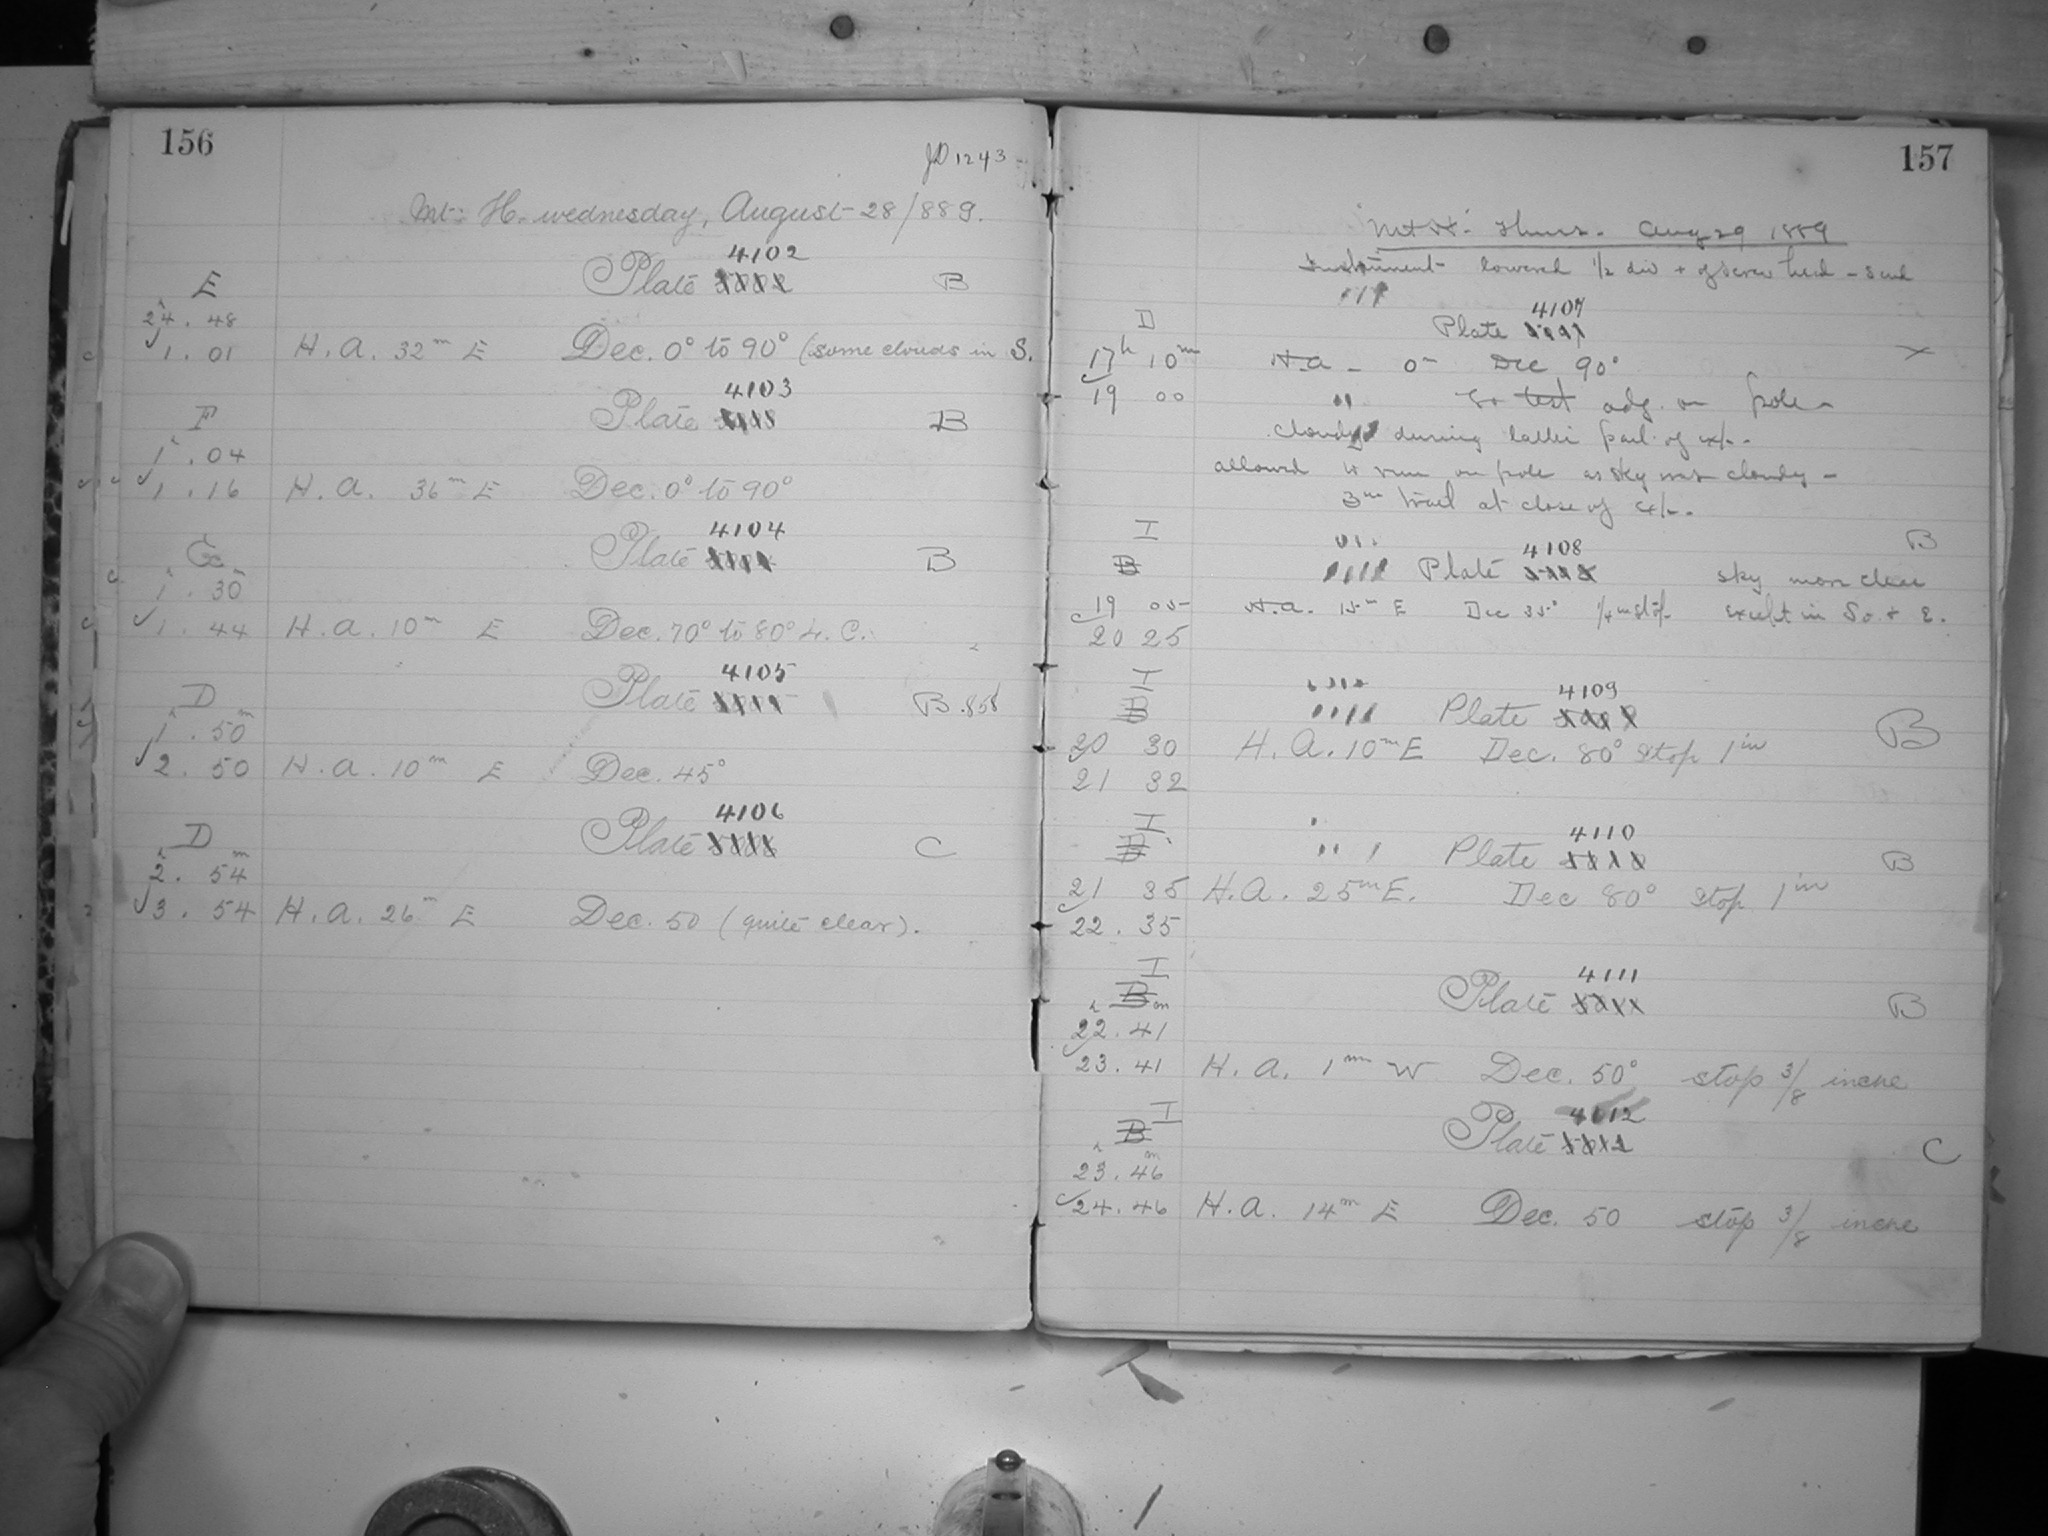 156
JD 1243
Mt. H. wednesday, August 28/889.
E Plate 4102 B
24. 48
1. 01 H. A. 32m E Dec. 0° to 90° (some clouds in S.
F Plate 4103 B
1. 04
1. 16 H. A. 36m E Dec. 0° to 90°
G Plate 4104 B
1. 30
1. 44 H. A. 10m E Dec. 70° to 80° L. C.
D Plate 4105 B
1. 50
2. 50 H. A. 10m E Dec. 45°
D Plate 4106 C
2. 54
3. 54 H. A. 26m E Dec. 50 (quite clear).
157
Mt H. Thurs. Aug 29 1889
Instrument lowered 1/2 div + of screw head
D Plate 4107
17h 10m H.A. 0 Dec 90°
19 00 " test adj. on pole
cloudy during latter part of
allowed to run on pole as sky was cloudy -
3m trail at close of
I B
B Plate 4108 sky more clear
19 05 H.A. 15m E Dec 35° 1/4 in stop except in So. & E.
20 25
I
B Plate 4109 B
20 30 H. A. 10m E Dec. 80° stop 1in
21 32
I
B Plate 4110 B
21 35 H. A. 25m E. Dec 80° stop 1in
22. 35
I
B Plate 4111 B
22. 41
23. 41 H. A. 1m W Dec. 50° stop 3/8 inche
I
B Plate 4112 C
23. 46
24. 46 H. A. 14m E Dec. 50 stop 3/8 inche